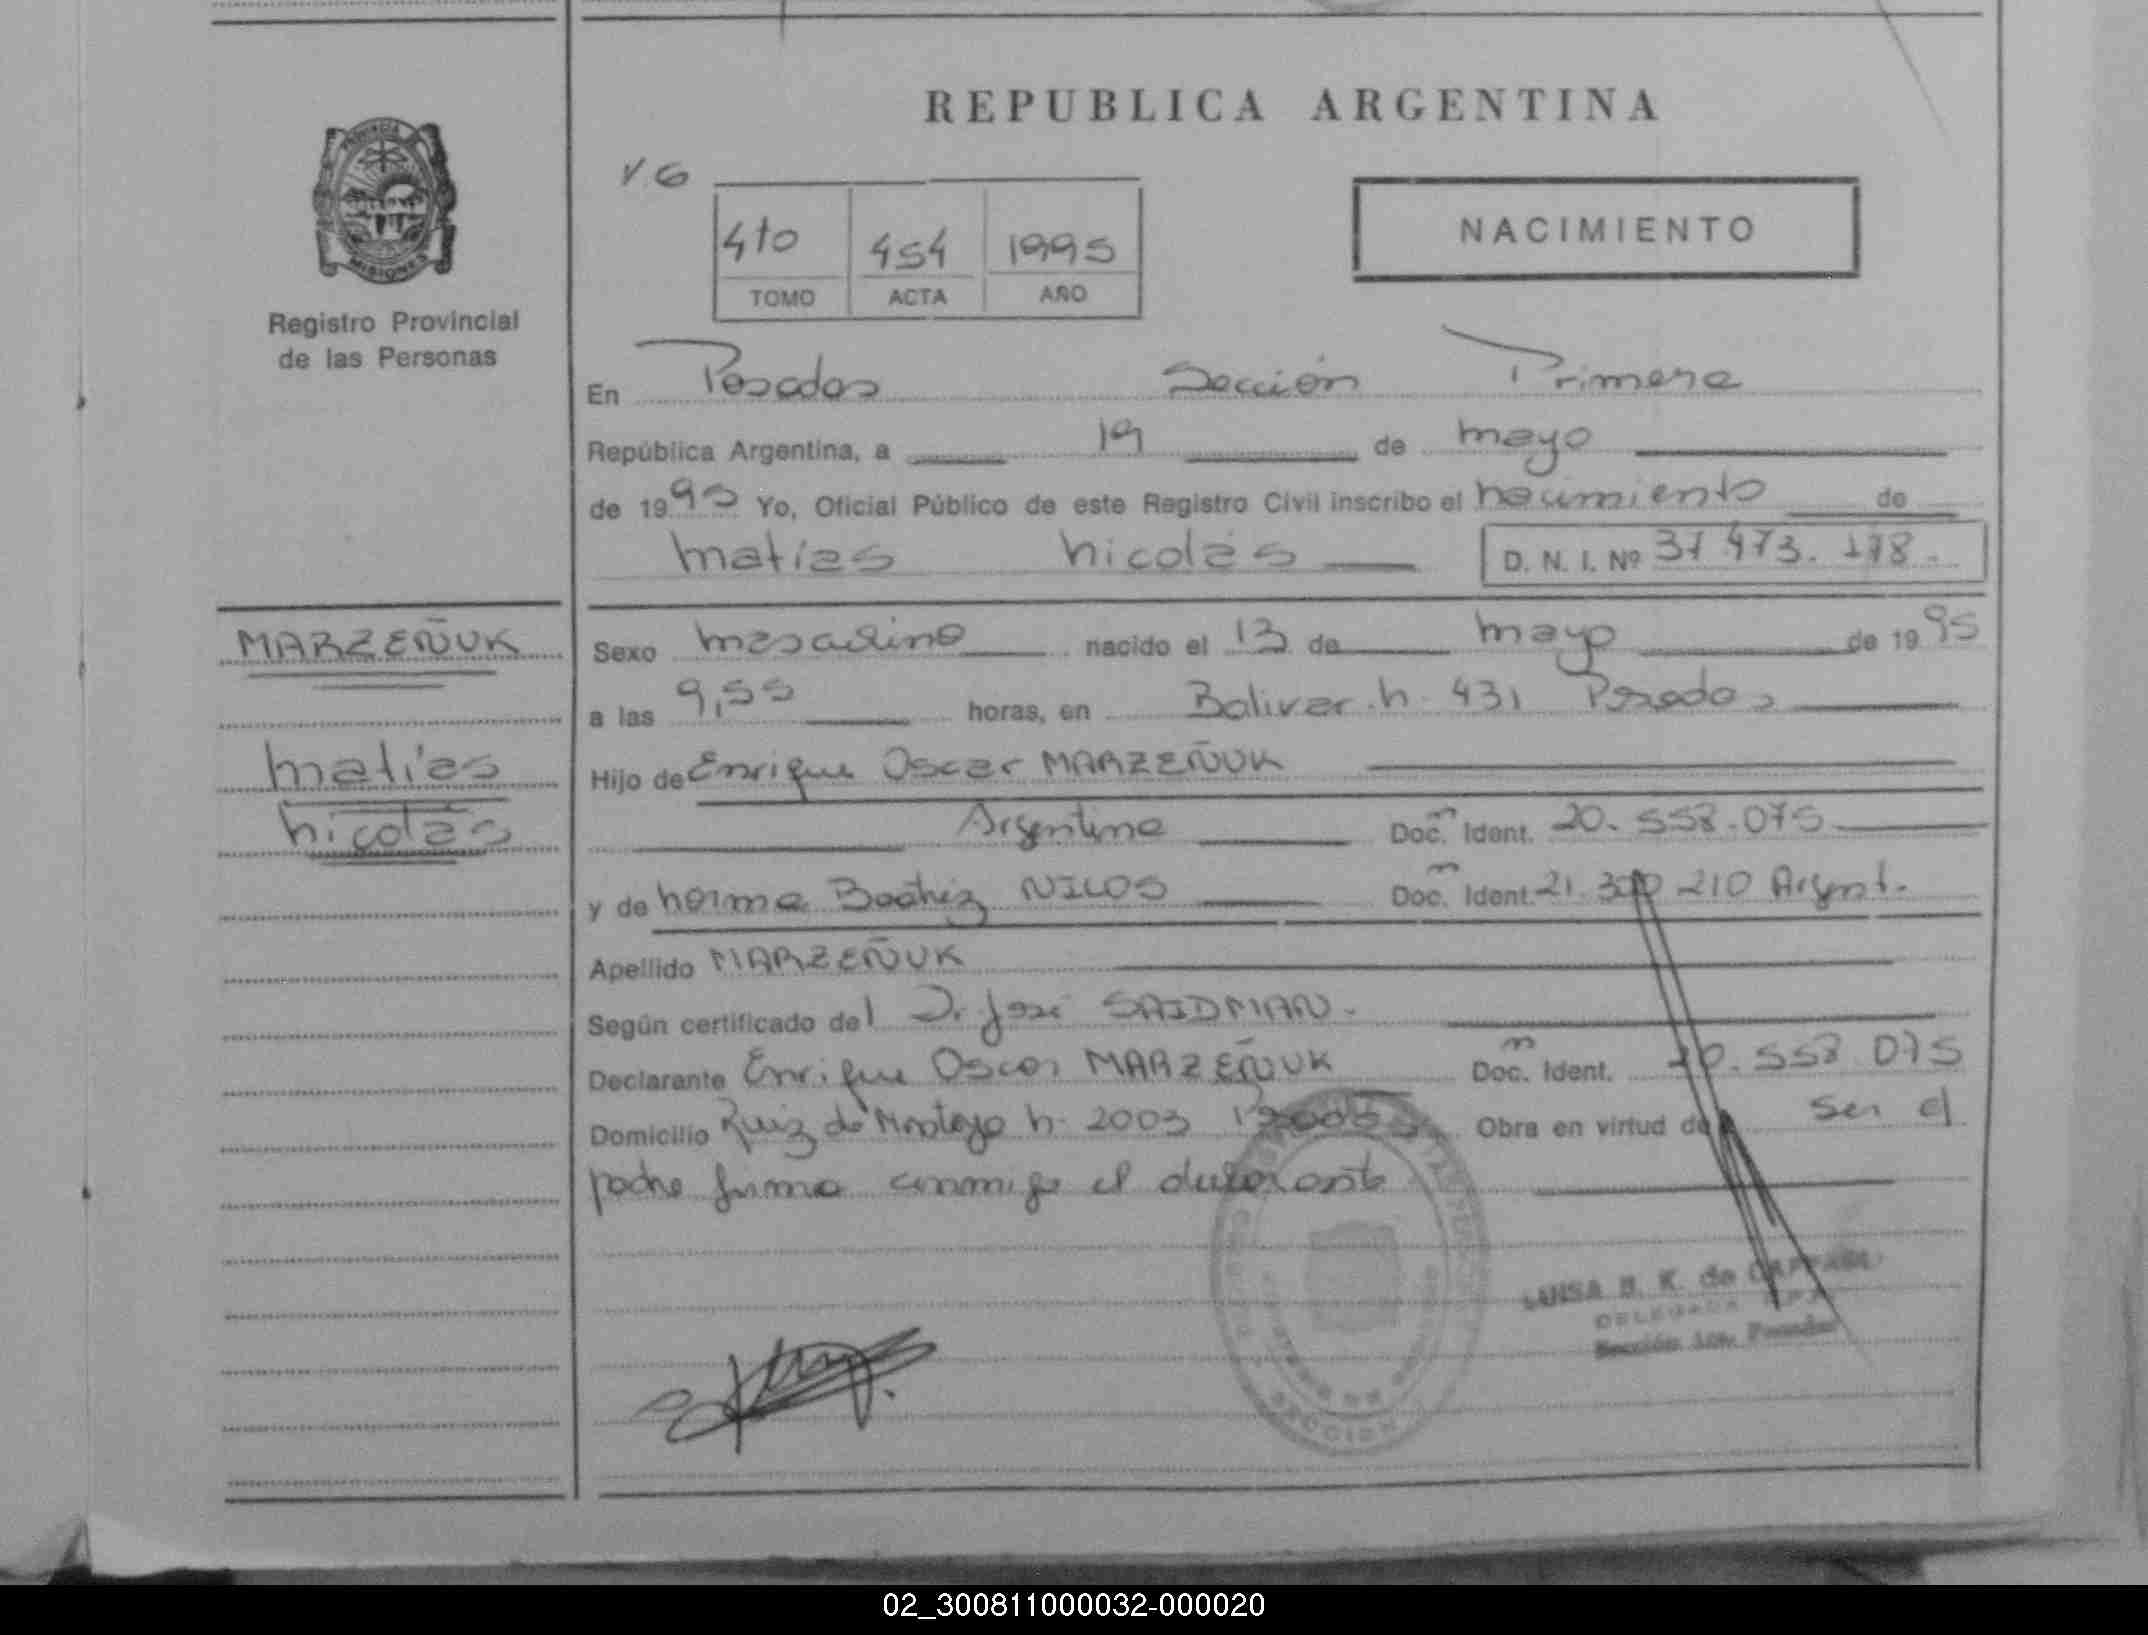 REPUBLICA ARGENTINA
PROVINCIA
MISIONES
Registro Provincial
de las Personas
V6
4to 454 1995
TOMO ACTA AÑO
NACIMIENTO
En Posadas Sección Primera
República Argentina, a 19 de mayo
de 1995 Yo, Oficial Público de este Registro Civil inscribo el nacimiento de
Matías Nicolás D. N. I. Nº 37 473. 178.
MARZEÑUK
Matías
Nicolás
Sexo masculino nacido el 13 de mayo de 1995
a las 9,55 horas, en Bolivar n. 431 Posadas
Hijo de Enrique Oscar MARZEÑUK
Argentino Doc. Ident. 20. 558.075
y de Norma Beatriz NILOS Doc. Ident. 21. 300 210 Argent.
Apellido MARZEÑUK
Según certificado del Dr José SAIDMAN.
Declarante Enrique Oscar MARZEÑUK Doc. Ident. 20. 558 075
Domicilio Ruiz de Montoya n. 2003 Posadas Obra en virtud de Ser el
padre firma conmigo el declarante
LUISA B. K. de
DELEGADA
Sección 1ra. Posadas
SECCION
02_300811000032-000020